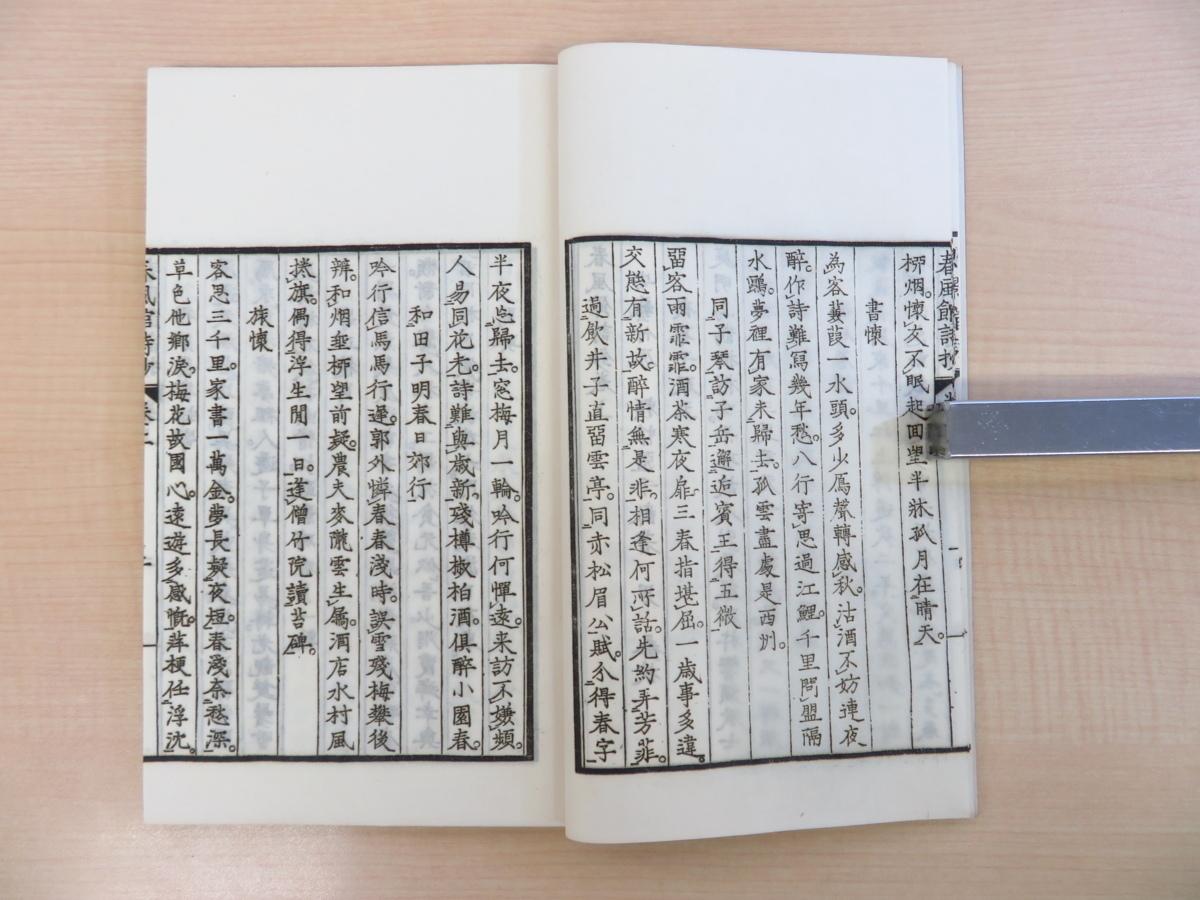 春風館詩抄
柳烟。懷友不眠起回望半牀孤月在晴天。
書懷
為客蒹葭一水頭。多少雁聲轉感秋。沽酒不妨連夜
醉。作詩難寫幾年愁。八行寄思過江鯉。千里問盟隔
水鷗。夢裡有家未歸去。孤雲盡處是西州。
同子琴訪子岳邂逅賓王得五微
留客雨霏霏。酒茶寒夜扉。三春指堪屈。一歲事多違。
交態有新故。醉情無是非。相逢何所話。先約弄芳菲。
過飲井子直留雲亭。同赤松眉公賦分得春字
半夜忘歸去。窓梅月一輪。吟行何憚遠。来訪不嫌頻。
人易同花老。詩難與歲新。殘樽椒柏酒。俱醉小園春。
和田子明春日郊行
吟行信馬馬行遲。郭外憐春春淺時。誤雪殘梅攀後
辨。和烟垂柳望前疑。農夫麥隴雲生屩。酒店水村風
捲旗。偶得浮生閒一日。逢僧竹院讀苔碑。
旅懷
客思三千里。家書一萬金。夢長疑夜短。春淺奈愁深。
草色他鄉淚。梅花故國心。遠遊多感慨。萍梗任浮沈。
春風館詩抄